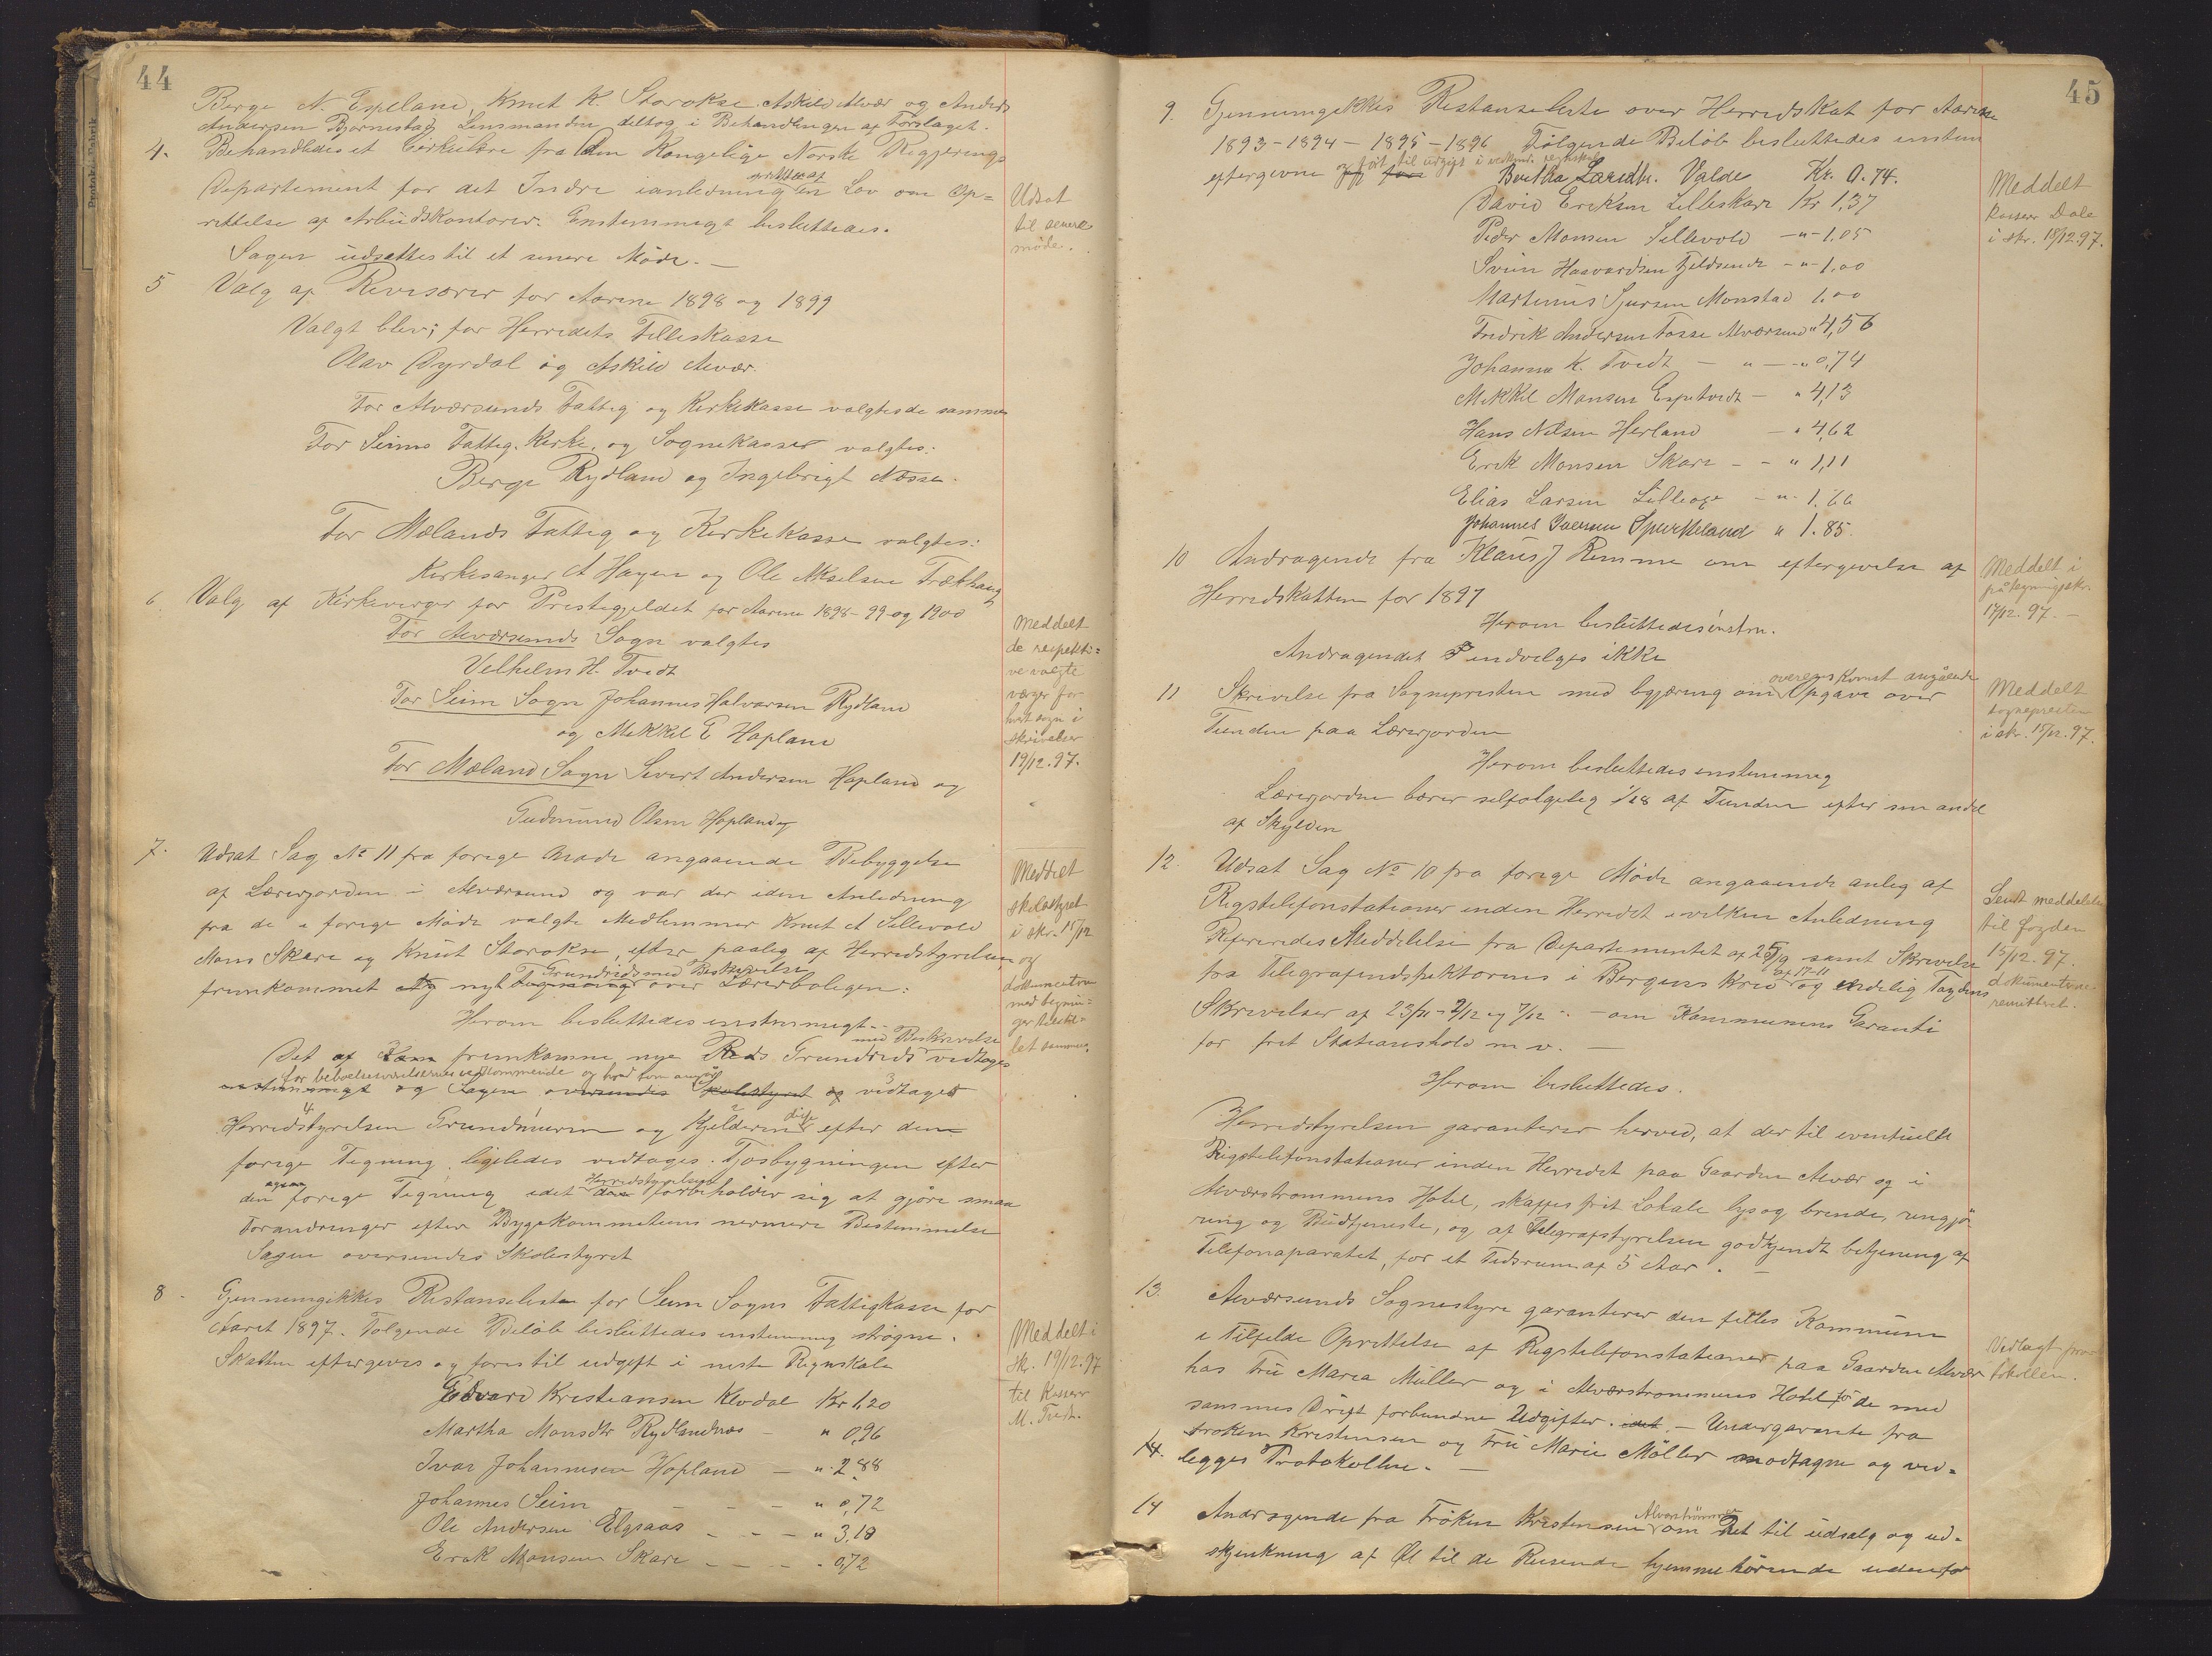 44
Berge N. Espeland, Knut K. Storoksе. Askild Alvær og Anders
Andersen Bjørnestad, Lensmanden deltog i Behandlingen af Forslaget.
4. Behandledes et Cirkulære fra den Kongelige Norske Regjerings
Departement for det Indre ianledning en Lov om Op=
rettelse af Arbeidskontorer. Enstemmigt besluttedes.
Sagen udsættes til et senere Møde. —
Udsat
til senere
møde.
5 Valg af Revisorer for Aarene 1898 og 1899
Valgt blev; for Herredets Felleskasse
Olav Dyrdal og Askild Alvær.
For Alværsunds Fattig og Kirkekasse valgtes de samme
For Seims Fattig. Kirke. og Sognekasser valgtes:
Berge Rydland og Ingebrigt Næsse.
For Mælands Fattig og Kirkekasse valgtes:
Kirkesanger A Hagen og Ole Akselsen Trækhaug
6. Valg af Kirkeverger for Prestegjeldet for Aarene 1898-99 og 1900
For Alværsunds Sogn valgtes
Velhelm H. Tvedt
For Seim Sogn Johannes Halvorsen Rydland
og Mikkel E Hopland
For Mæland Sogn Sivert Andersen Hopland og
Gudmund Olsen Hopland
Meddelt
de respekti=
ve valgte
værger for
hvert sogn i
skrivelser
19/12.97.
7. Udsat Sag No 11 fra forige Møde angaaende Bebyggelse
af Lærerjorden i Alværsund og var der iden Anledning
fra de i forige Møde valgte Medlemmer Knut A Sellevold
Mons Skare og Knut Storokse, efter paaleg af Herredstyrelsen
fremkommet nyt Grundrids med Beskrivelse over Lærerboligen:
Herom besluttedes enstemmigt..
Det af fremkomne nye Grundrids med Beskrivelse vedtages
for beboelsesværelsernes vedkommende og hvad som angår
enstemmigt og Sagen oversendes Skolestyret og vedtages
Herredstyrelsen Grundmuren og Kjelderen disse efter den
forige Tegning ligeledes vedtages. Fjøsbygningen efter
den ogsaa forige Tegning idet Herredstyrelsen forbeholder sig at gjøre smaa
Forandringer efter Bygekommiteens nermere Bestemmelse
Sagen oversendes Skolestyret
Meddelt
skolestyret
i skr. 15/12
og
dokumenterne
med tegnin=
ger tilstil=
let samme.
8. Gjennemgikkes Restanseliste for Seim Sogns Fattigkasse for
Aaret 1897. Følgende Beløb besluttedes enstemmig strøgne.
Skatten eftergives og føres til udgift i neste Regnskab
Edvard Kristiansen Kvodal Kr 1,20
Martha Monsdtr Rydlandnæs — " 0,96
Ivar Johannesen Hopland — " 2.88
Johannes Seim — — — " 0,72
Ole Andersen Elgsaas — — — " 3,18
Erik Monsen Skare — — — " 0,72
Meddelt i
skr. 19/12.97
til Kasserer
M. Tvedt.
45
9. Gjennemgikkes Restanseliste over Herredskat for Aarene
1893-1894-1895-1896 Følgende Beløb besluttedes enstem
eftergivne og ført til udgift i vedkom. regnskab
Bertha Larsdtr. Valde Kr. 0.74.
David Eriksen Lilleskare Kr 1,37
Peder Monsen Sellevold — " — 1.05
Svein Haavardsen Fjeldsende — " — 1,00
Martinus Sjursen Monstad 1.00
Fredrik Andersen Fosse Alværsund " 4,56
Johanna K. Tvedt — " — " 0,74
Mikkel Monsen Espetvedt — " 4,13
Hans Nilsen Herland — " 4,62
Erik Monsen Skare — — " 1,11
Elias Larsen Lilleoxe — " — 1.66
Johannes Iversen Spurkeland " 1.85.
Meddelt
kasserer Dale
i skr. 18/12.97.
10 Andragende fra Klaus J Remme om eftergivelse af
Herredskatten for 1897
Herom besluttedes enstm.
Andragendet indvelges ikke
Meddelt i
påtegningskr.
17/12. 97. —
11 Skrivelse fra Sognepresten med begjæring om overenskomst angående Opgave over
Tienden paa Lærerjorden
Herom besluttedes enstemmig
Lærerjorden bærer selfølgelig 1/28 af Tienden efter sin andel
af Skylden
Meddelt
sognepresten
i skr. 15/12.97.
12. Udsat Sag No 10 fra forige Møde angaaende anleg af
Rigstelefonstationer inden Herredet i vilken Anledning
Refereredes Meddelelse fra Departementet af 25/9 samt Skrivelse
fra Telegrafindspektørens i Bergens Kreds af 17-11 og endelig Fogdens
Skrivelser af 23/11 - 2/12 og 7/12 .. — om Kommunens Garanti
for frit Stationshold m v. —
Herom besluttedes.
Herredstyrelsen garanterer herved, at der til eventuelle
Rigstelefonstationer inden Herredet paa Gaarden Alvær og i
Alværstrømmens Hotel, skaffes frit Lokale lys og brende, rengjø
ring og Budtjeneste, og af Telegrafstyrelsen godkjendt betjening af
Telefonaparatet, for et Tidsrum af 5 Aar. —
Sendt meddelelse
til fogden
15/12.97.
dokumenterne
remitteret.
13. Alværsunds Sognestyre garanterer den felles Kommune
i Tilfelde Oprettelse af Rigstelefonstationer paa Gaarden Alvær
hos Fru Maria Müller og i Alværstrømmens Hotel for de med
sammes Drift forbundne Udgifter. idet — Undergarante fra
frøken Kristensen og Fru Marie Möller modtagne og ved=
14. legges Protokollen. —
Vedlagt pro=
tokollen.
14 Andragende fra Frøken Kristensen Alverstrømmen om Ret til udsalg og ud=
skjenkning af Øl til de Reisende hjemmehørende udenfor